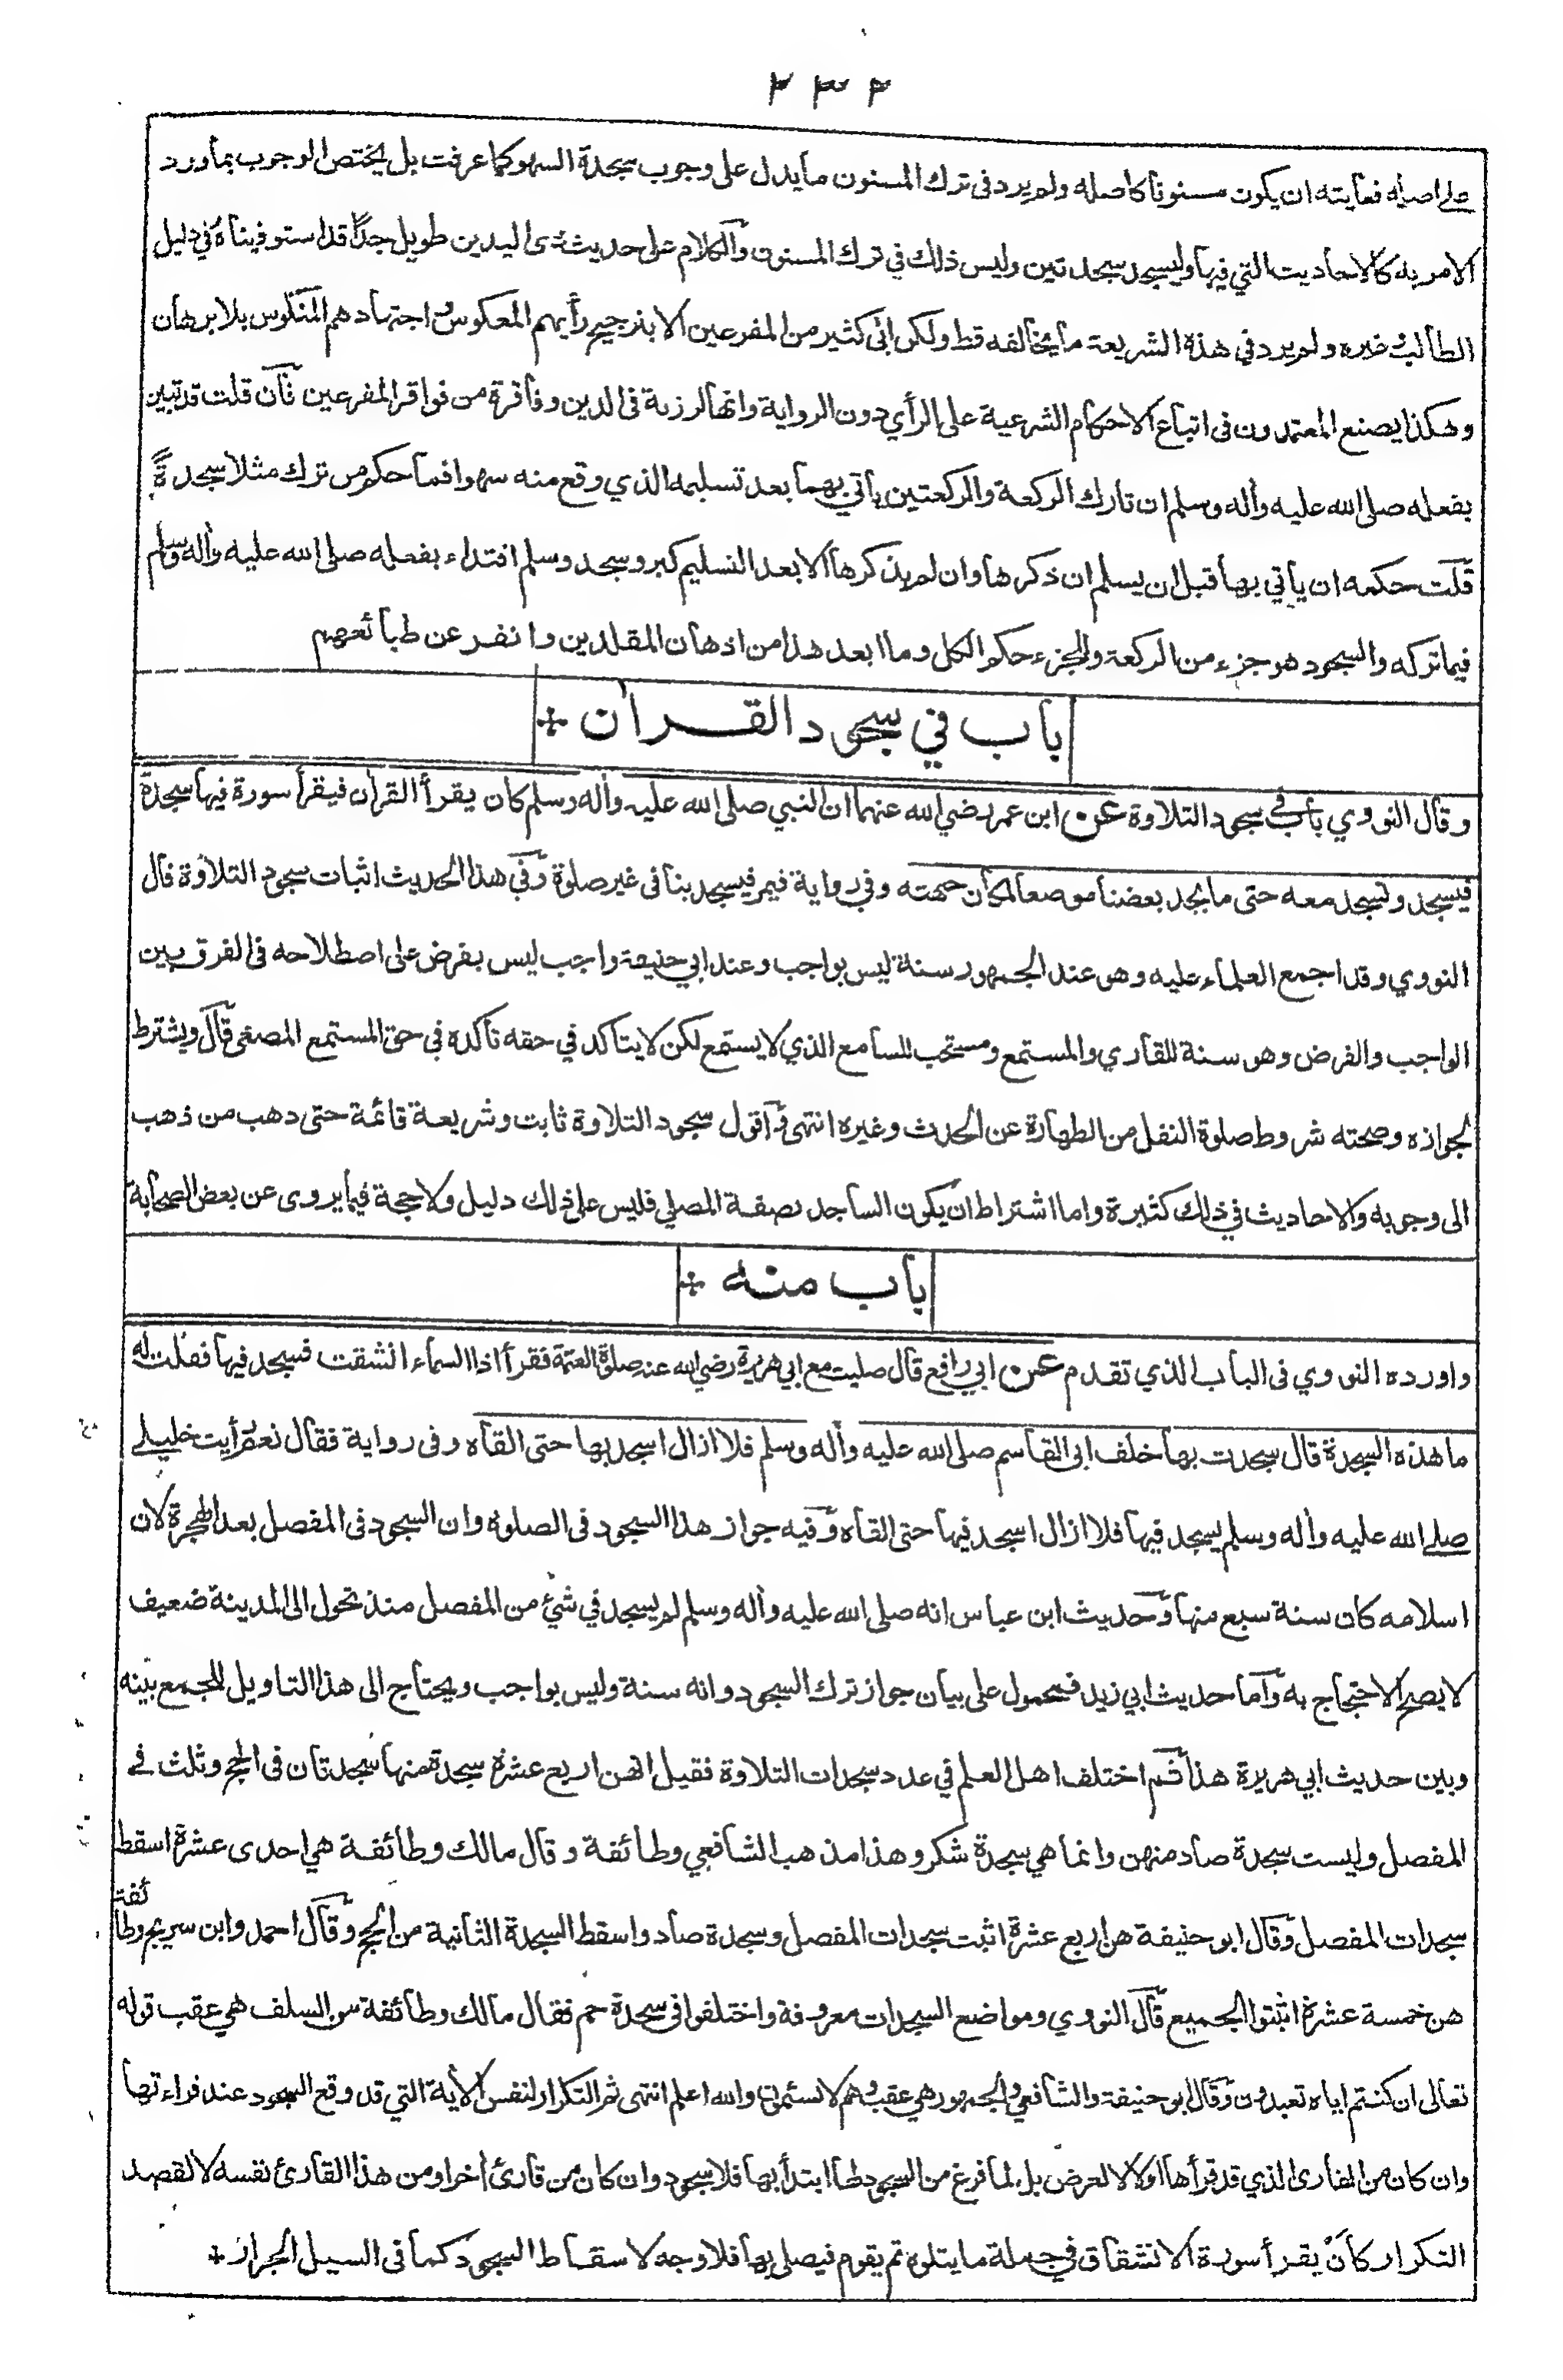 ۲۳۲
على اصله فغايته ان يكون مسنونا كاصله ولم يرد فى ترك المسنون ما يدل على وجوب سجدة السهو كما عرفت بل يختص الوجوب بما ورد
الامر به كالاحاديث التي فيها وليسجد سجدتين وليس ذلك في ترك المسنون والكلام على حديث ذى اليدين طويل جدًا قد استوفيناه في دليل
الطالب وغيره ولم يرد في هذه الشريعة ما يخالفه قط ولكن ابى كثير من المفرعين الا بترجيح رأيهم المعكوس واجتهادهم المنكوس بلا برهان
وهكذا يصنع المعتمدون فى اتباع الاحكام الشرعية على الرأي دون الرواية وانها لرزية فى الدين وفاقرة من فواقر المفرعين فان قلت قد تبين
بفعله صلى الله عليه وأله وسلم ان تارك الركعة والركعتين يأتي بهما بعد تسليمه الذي وقع منه سهوا فما حكم من ترك مثلا سجدةً
قلت حكمه ان يأتي بها قبل ان يسلم ان ذكرها وان لم يذكرها الا بعد التسليم كبر وسجد وسلم اقتداء بفعله صلى الله عليه وأله وسلم
فيما تركه والسجود هو جزء من الركعة وللجزء حكم الكل وما ابعد هذا من اذهان المقلدين وانفر عن طبائعهم
باب في سجود القرأن
وقال النووي باب في سجود التلاوة عن ابن عمر رضي الله عنهما ان النبي صلى الله عليه وأله وسلم كان يقرأ القرأن فيقرأ سورة فيها سجدة
فيسجد ونسجد معه حتى ما يجد بعضنا موضعا لمكان جبهته وفي رواية فيمر فيسجد بنا فى غير صلوة وفي هذا الحديث اثبات سجود التلاوة قال
النووي وقد اجمع العلماء عليه وهو عند الجمهور سنة ليس بواجب وعند ابي حنيفة واجب ليس بفرض على اصطلاحه فى الفرق بين
الواجب والفرض وهو سنة للقاري والمستمع ومستحب للسامع الذي لا يستمع لكن لا يتاكد في حقه تأكده في حق المستمع المصغى قال ويشترط
لجوازه وصحته شروط صلوة النفل من الطهارة عن الحدث وغيره انتهى وأقول سجود التلاوة ثابت وشريعة قائمة حتى ذهب من ذهب
الى وجوبه والاحاديث في ذلك كثيرة واما اشتراط ان يكون الساجد بصفة المصلي فليس على ذلك دليل ولا حجة فيما يروى عن بعض الصحابة
باب منه
واورده النووي فى الباب الذي تقدم عن ابي رافع قال صليت مع ابي هريرة رضي الله عنه صلوة العتمة فقرأ اذا السماء انشقت فسجد فيها فقلت له
ما هذه السجدة قال سجدت بها خلف ابى القاسم صلى الله عليه وأله وسلم فلا ازال اسجد بها حتى القاه وفى رواية فقال نعم رأيت خليلي
صلى الله عليه وأله وسلم يسجد فيها فلا ازال اسجد فيها حتى القاه وفيه جواز هذا السجود فى الصلوة وان السجود فى المفصل بعد الهجرة لان
اسلامه كان سنة سبع منها وحديث ابن عباس انه صلى الله عليه وأله وسلم لم يسجد في شيء من المفصل منذ تحول الى المدينة ضعيف
لا يصح الاحتجاج به وأما حديث ابي زيد فمحمول على بيان جواز ترك السجود وانه سنة وليس بواجب ويحتاج الى هذا التاويل للجمع بينه
وبين حديث ابي هريرة هذا ثم اختلف اهل العلم في عدد سجدات التلاوة فقيل انهن اربع عشرة سجدة منها سجدتان فى الحج وثلث في
المفصل وليست سجدة صاد منهن وانما هي سجدة شكر وهذا مذهب الشافعي وطائفة وقال مالك وطائفة هي احدى عشرة اسقط
سجدات المفصل وقال ابو حنيفة هن اربع عشرة اثبت سجدات المفصل وسجدة صاد واسقط السجدة الثانية من الحج وقال احمد وابن سريج وطائفة
هن خمسة عشرة اثبتوا الجميع قال النووي ومواضع السجدات معروفة واختلفوا في سجدة حم فقال مالك وطائفة من السلف هي عقب قوله
تعالى ان كنتم اياه تعبدون وقال ابو حنيفة والشافعي والجمهور هي عقب وهم لا يسئمون والله اعلم انتهى ثم التكرار لنفس الأية التي قد وقع السجود عند قراءتها
وان كان من القارى الذي قد قرأها اولا لا لعرض بل لما فرغ من السجود لها ابتدأ بها فلا سجود وان كان من قارئ أخر او من هذا القارئ نفسه لا لقصد
التكرار كأن يقرأ سورة الانشقاق في جملة ما يتلوه ثم يقوم فيصلي بها فلا وجه لاسقاط السجود كما فى السيل الجرار